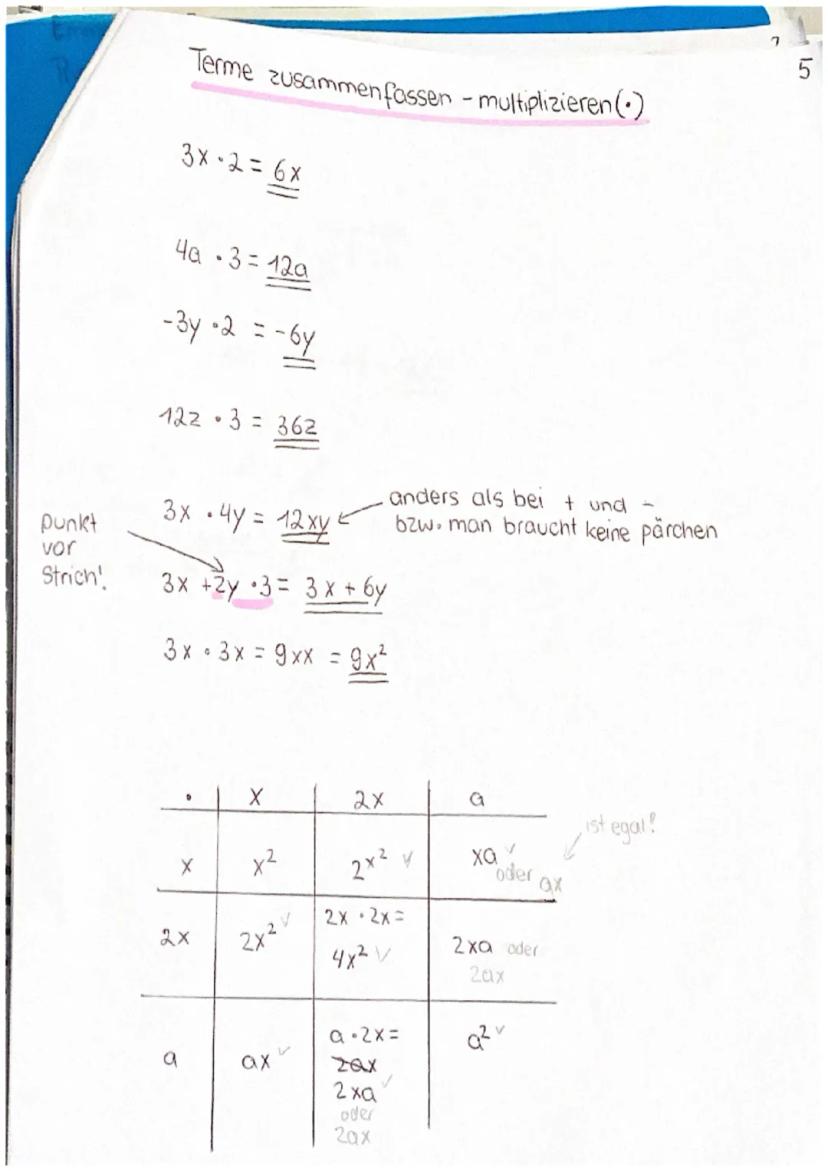 5
Terme zusammenfassen - multiplizieren (·)
3x · 2 = 6x
4a · 3 = 12a
-3y · 2 = -6y
12z · 3 = 36z
3x · 4y = 12xy
anders als bei + und -
bzw. man braucht keine pärchen
punkt
vor
Strich!
3x + 2y · 3 = 3x + 6y
3x · 3x = 9xx = 9x²
· x 2x a
ist egal!
x x² 2x² ✓ xa ✓
oder ax
2x 2x² ✓ 2x · 2x =
4x² ✓
2xa oder
2ax
a ax ✓ a · 2x =
2ax
2xa ✓
oder
2ax
a² ✓